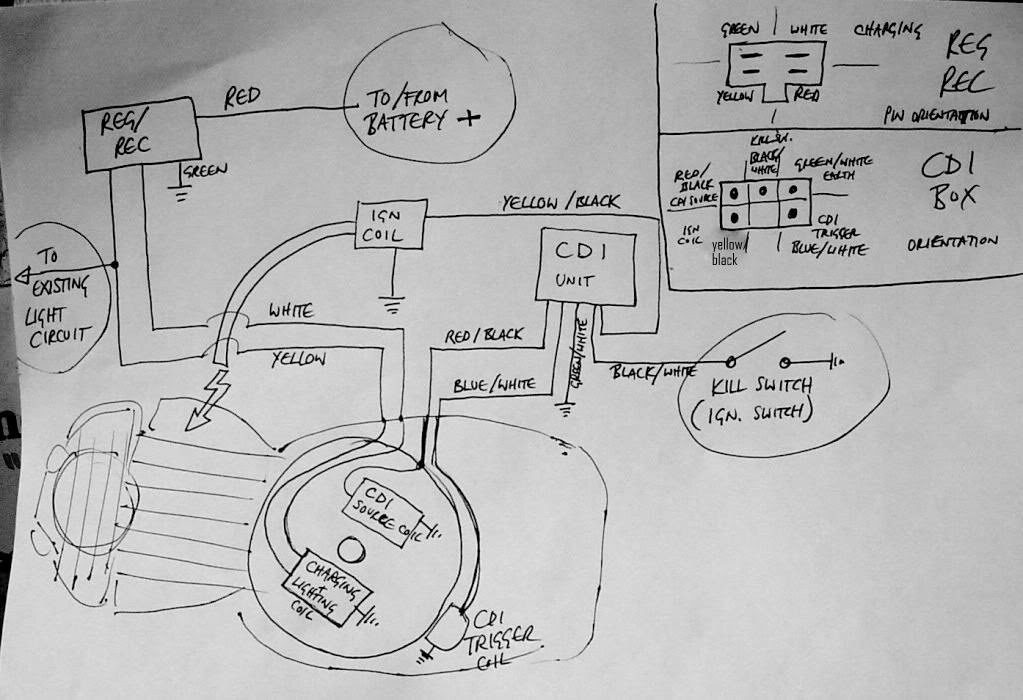 GREEN WHITE CHARGING
REG
REC
YELLOW RED
PIN ORIENTATION
KILL SW.
BLACK/
WHITE
RED/
BLACK
CDI SOURCE
GREEN/WHITE
EARTH
CDI
BOX
IGN
COIL
yellow/
black
CDI
TRIGGER
BLUE/WHITE
ORIENTATION
REG/
REC
RED
TO/FROM
BATTERY +
GREEN
IGN
COIL
YELLOW/BLACK
CDI
UNIT
TO
EXISTING
LIGHT
CIRCUIT
WHITE
YELLOW
RED/BLACK
BLUE/WHITE
GREEN/WHITE
BLACK/WHITE
KILL SWITCH
(IGN. SWITCH)
CDI
SOURCE COIL
CHARGING
+
LIGHTING
COIL
CDI
TRIGGER
COIL